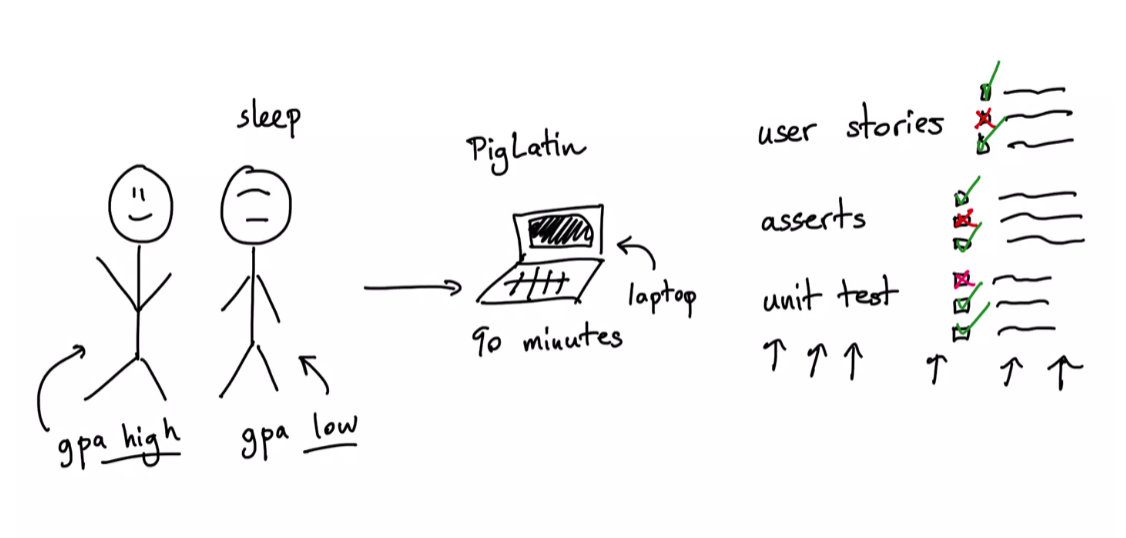 sleep
gpa high
gpa low
PigLatin
laptop
90 minutes
user stories
asserts
unit test